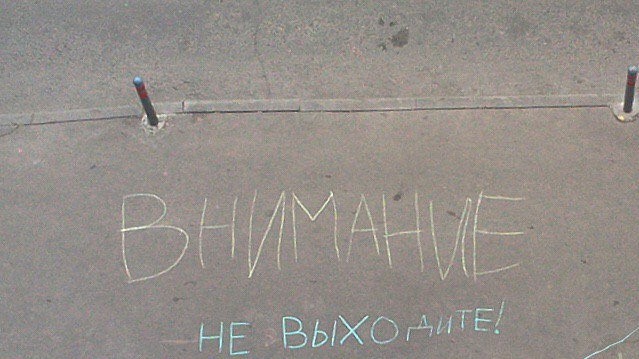 ВНИМАНИЕ
НЕ ВЫХОДИТЕ!